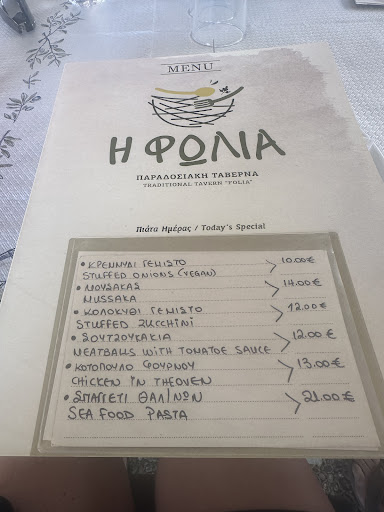 MENU
Η ΦΩΛΙΑ
ΠΑΡΑΔΟΣΙΑΚΗ ΤΑΒΕΡΝΑ
TRADITIONAL TAVERN "FOLIA"
Πιάτα Ημέρας / Today's Special
• ΚΡΕΜΜΥΔΙ ΓΕΜΙΣΤΟ 10.00€
STUFFED ONIONS (VEGAN)
• ΜΟΥΣΑΚΑΣ 14.00€
MUSSAKA
• ΚΟΛΟΚΥΘΙ ΓΕΜΙΣΤΟ 12.00€
STUFFED ZUCCHINI
• ΣΟΥΤΖΟΥΚΑΚΙΑ 12.00€
MEATBALLS WITH TOMATOE SAUCE
• ΚΟΤΟΠΟΥΛΟ ΦΟΥΡΝΟΥ 13.00€
CHICKEN IN THEOVEN
• ΣΠΑΓΓΕΤΙ ΘΑΛ/ΝΩΝ 21.00€
SEA FOOD PASTA